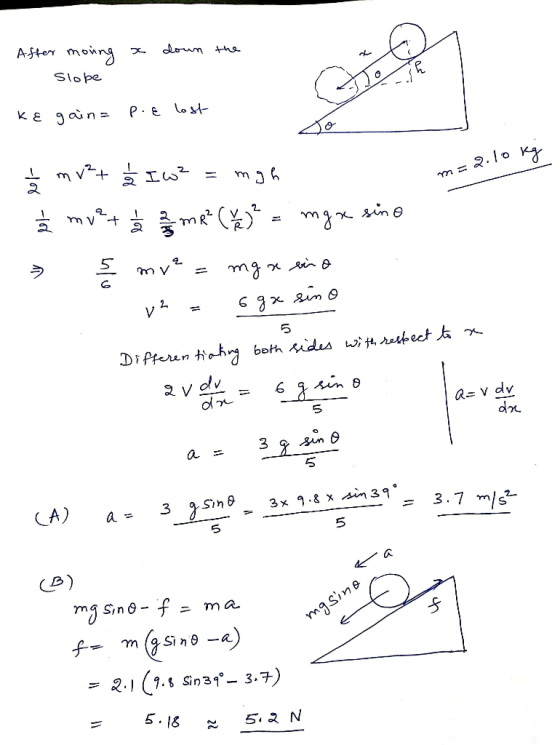 After moing x down the
Slope
KE gain = P.E lost
x
θ
h
θ
m = 2.10 kg
1/2 mv² + 1/2 Iω² = mgh
1/2 mv² + 1/2 2/3 mR² (V/R)² = mgx sinθ
⇒ 5/6 mv² = mgx sinθ
v² = 6gx sinθ / 5
Differentiating both sides with respect to x
2v dv/dx = 6g sinθ / 5
a = v dv/dx
a = 3g sinθ / 5
(A) a = 3 g sinθ / 5 = 3 x 9.8 x sin 39° / 5 = 3.7 m/s²
(B)
a
mg sinθ
f
mg sinθ - f = ma
f = m (g sinθ - a)
= 2.1 (9.8 sin 39° - 3.7)
= 5.18 ≈ 5.2 N